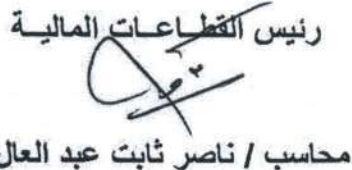 رئيس القطـاعـات الماليـة
محاسب / ناصر ثابت عبد العال